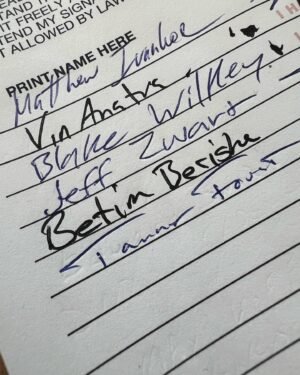 TAND T
IT FREELY
TEND MY SIGNA
T ALLOWED BY LAW
PRINT NAME HERE
Matthew Ivanhoe
Vin Anatra
Blake Wilkey
Jeff Zwart
Betim Berisha
Tanner Foust